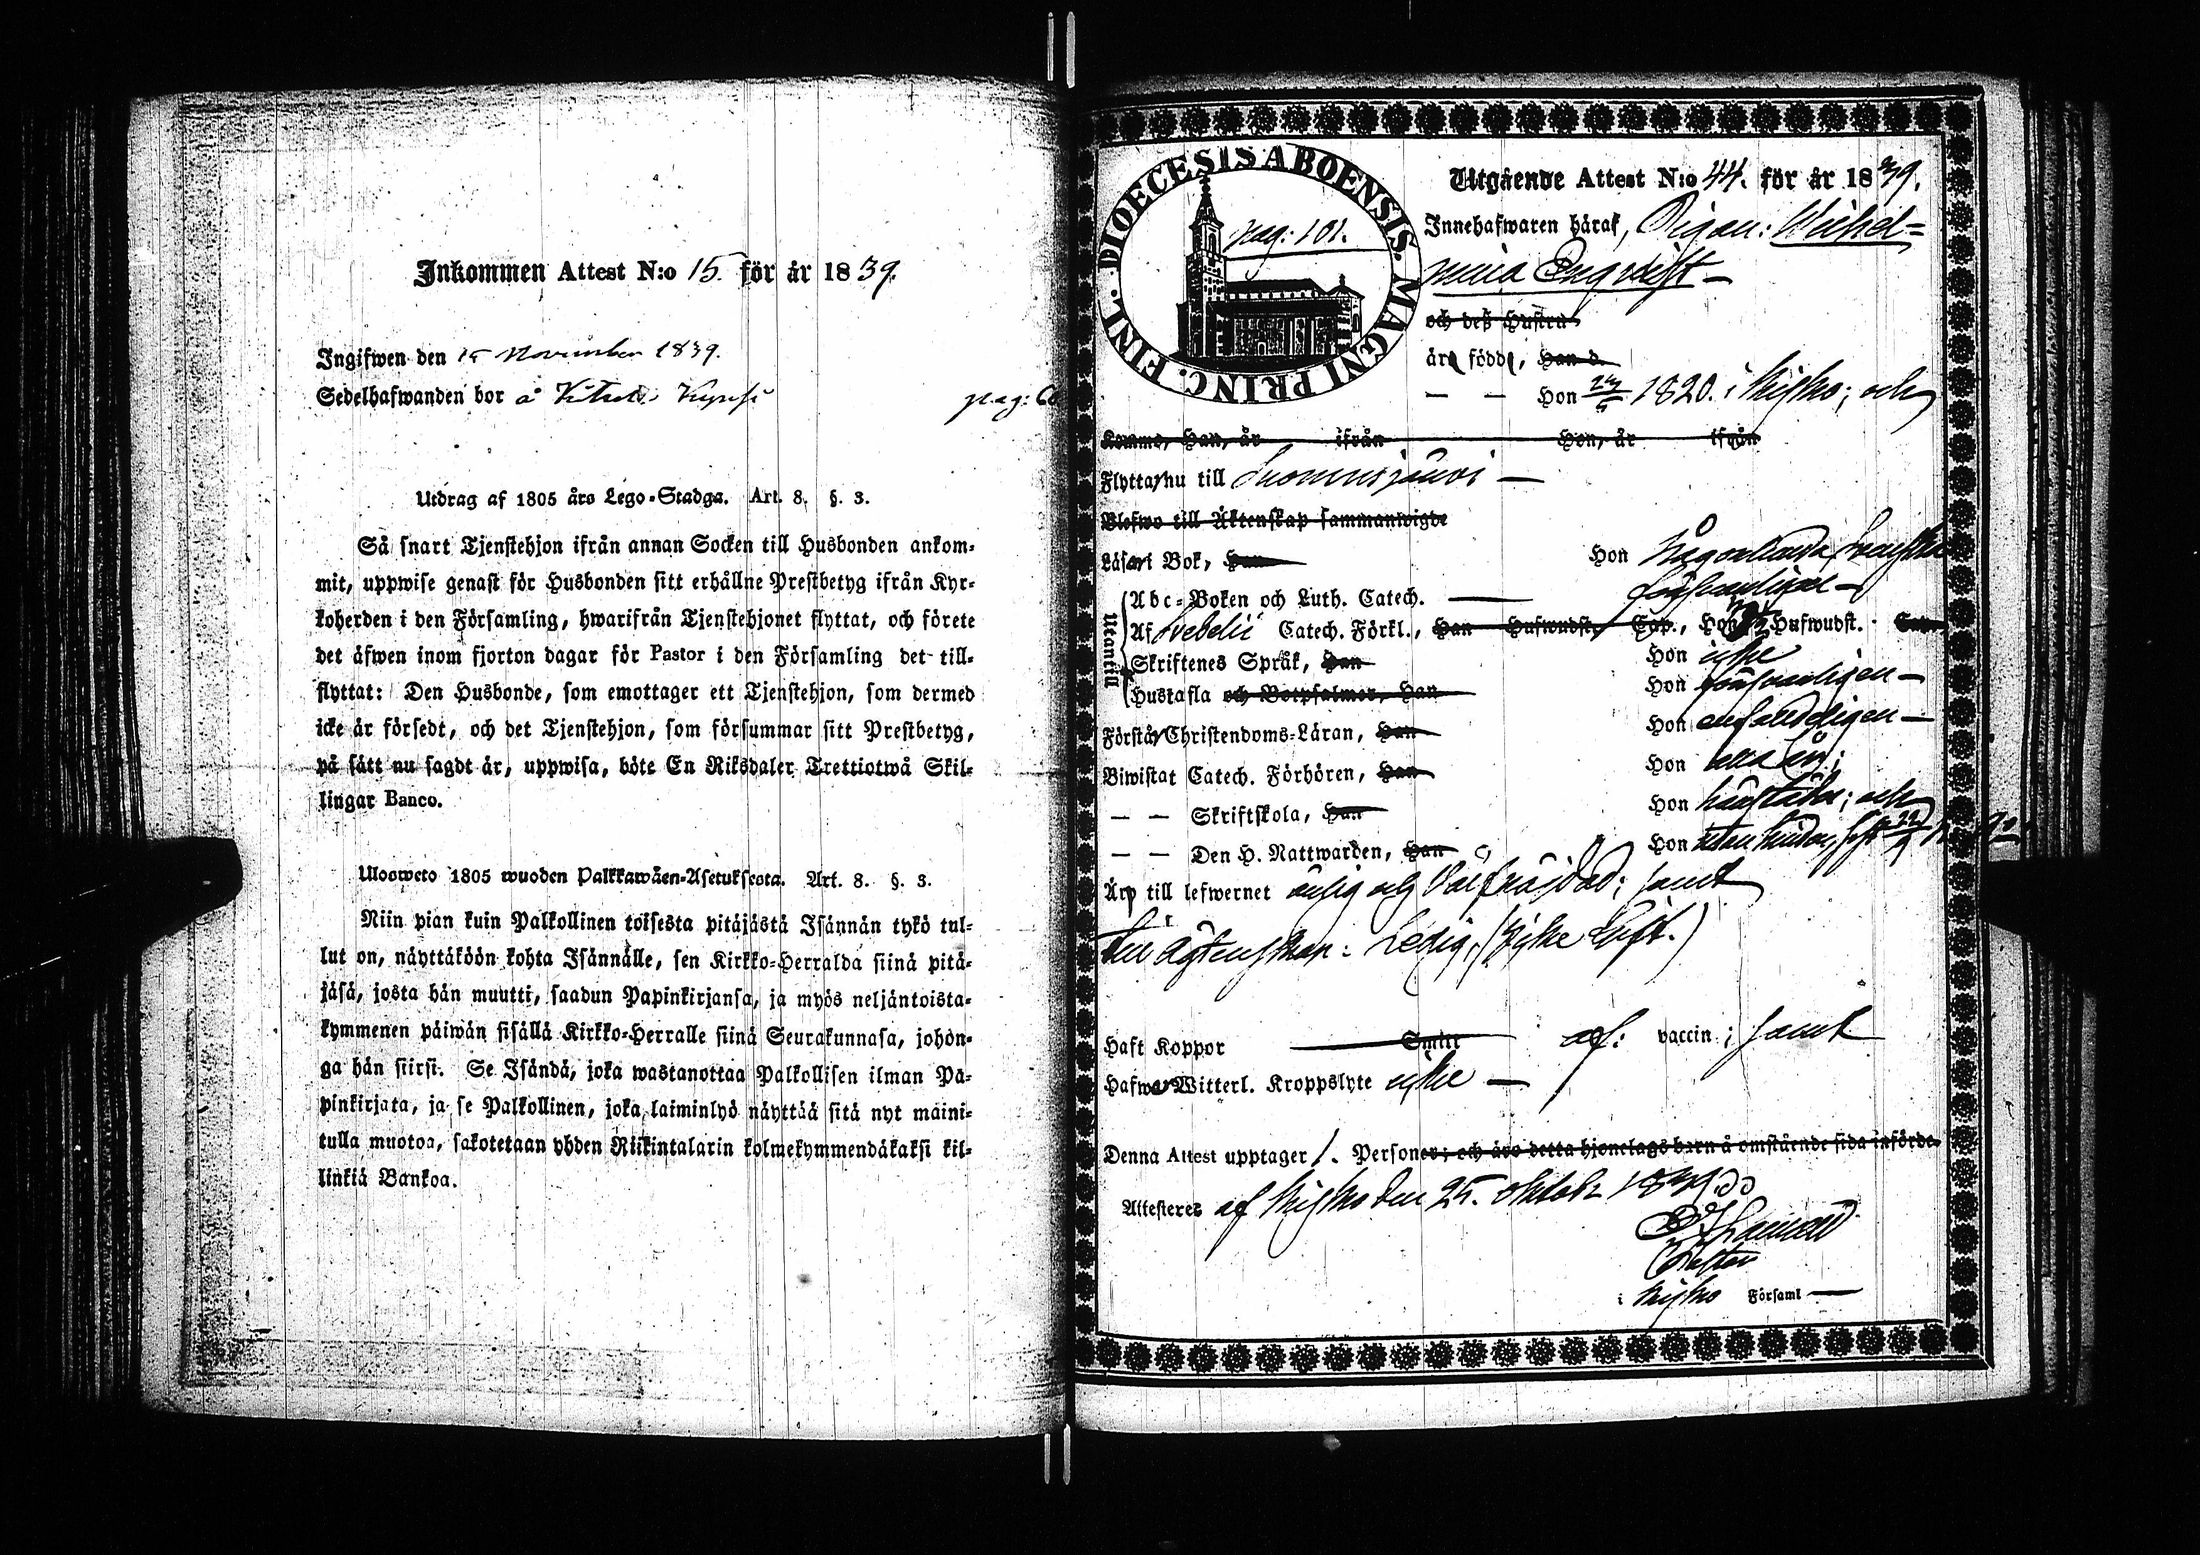 Inkommen Attest N:o 15. för år 1839.
Ingifwen den 15 November 1839.
Sedelhafwanden bor å
pag:
Utdrag af 1805 års Lego-Stadga. Art. 8. §. 3.
Så snart Tjenstehjon ifrån annan Socken till Husbonden ankom-
mit, uppwise genast för Husbonden sitt erhållne Prestbetyg ifrån Kyr-
koherden i den Församling, hwarifrån Tjenstehjonet flyttat, och förete
det äfwen inom fjorton dagar för Pastor i den Församling det till-
flyttat: Den Husbonde, som emottager ett Tjenstehjon, som dermed
icke är försedt, och det Tjenstehjon, som försummar sitt Prestbetyg,
på sätt nu sagdt är, uppwisa, böte En Riksdaler Trettiotwå Skil-
lingar Banco.
Ulosweto 1805 wuoden Palkkawäen-Asetuksesta. Art. 8. §. 3.
Niin pian kuin Palkollinen toisesta pitäjästä Isännän tykö tul-
lut on, näyttäköön kohta Isännälle, sen Kirkko-Herralda siinä pitä-
jäsä, josta hän muutti, saadun Papinkirjansa, ja myös neljäntoista-
kymmenen päiwän sisällä Kirkko-Herralle siinä Seurakunnasa, johon-
ga hän siirsi. Se Isändä, joka wastanottaa Palkollisen ilman Pa-
pinkirjata, ja se Palkollinen, joka laiminlyö näyttää sitä nyt maini-
tulla muotoa, sakotetaan yhden Riikintalarin kolmekymmendäkaksi kil-
linkiä Bankoa.
DIOECESIS ABOENSIS. MAGNI PRINC. FINL.
pag: 101.
Utgående Attest N:o 44. för år 1839.
Innehafwaren häraf, Pigan: Wilhel=
mina Engqvist
och dess Hustru
äro födde, Han d.
— — Hon 1820. i Kisko; och
Komne, Han, år ifrån Hon, år ifrån
Flytta nu till Suomusjärvi
Blefwo till Äktenskap sammanwigde
Läsa i Bok, Han Hon någorlunda, Svenska
Utantill
Abc-Boken och Luth. Catech. försvarligen
Af Svebelii Catech. Förkl., Han Hufwudst. Cap., Hon Hufwudst. Cap.
Skriftenes Språk, Han Hon icke
Hustafla och Botpsalmer, Han Hon försvarligen
Förstå Christendoms-Läran, Han Hon enfaldeligen
Biwistat Catech. Förhören, Han Hon
— — Skriftskola, Han Hon och
— — Den H. Nattwarden, Han Hon
Äro till lefwernet ärlig och välfräjdad; samt
till Ägtenskap: Ledig. (Icke Gift.)
Haft Koppor Smitt af: vaccin; samt
Hafwa Witterl. Kroppslyte icke
Denna Attest upptager 1. Personer; och äro detta hjonelags barn å omstående sida införde.
Attesteres af Kisko den 25. oktober 1839.
Pastor
i Kisko Församl